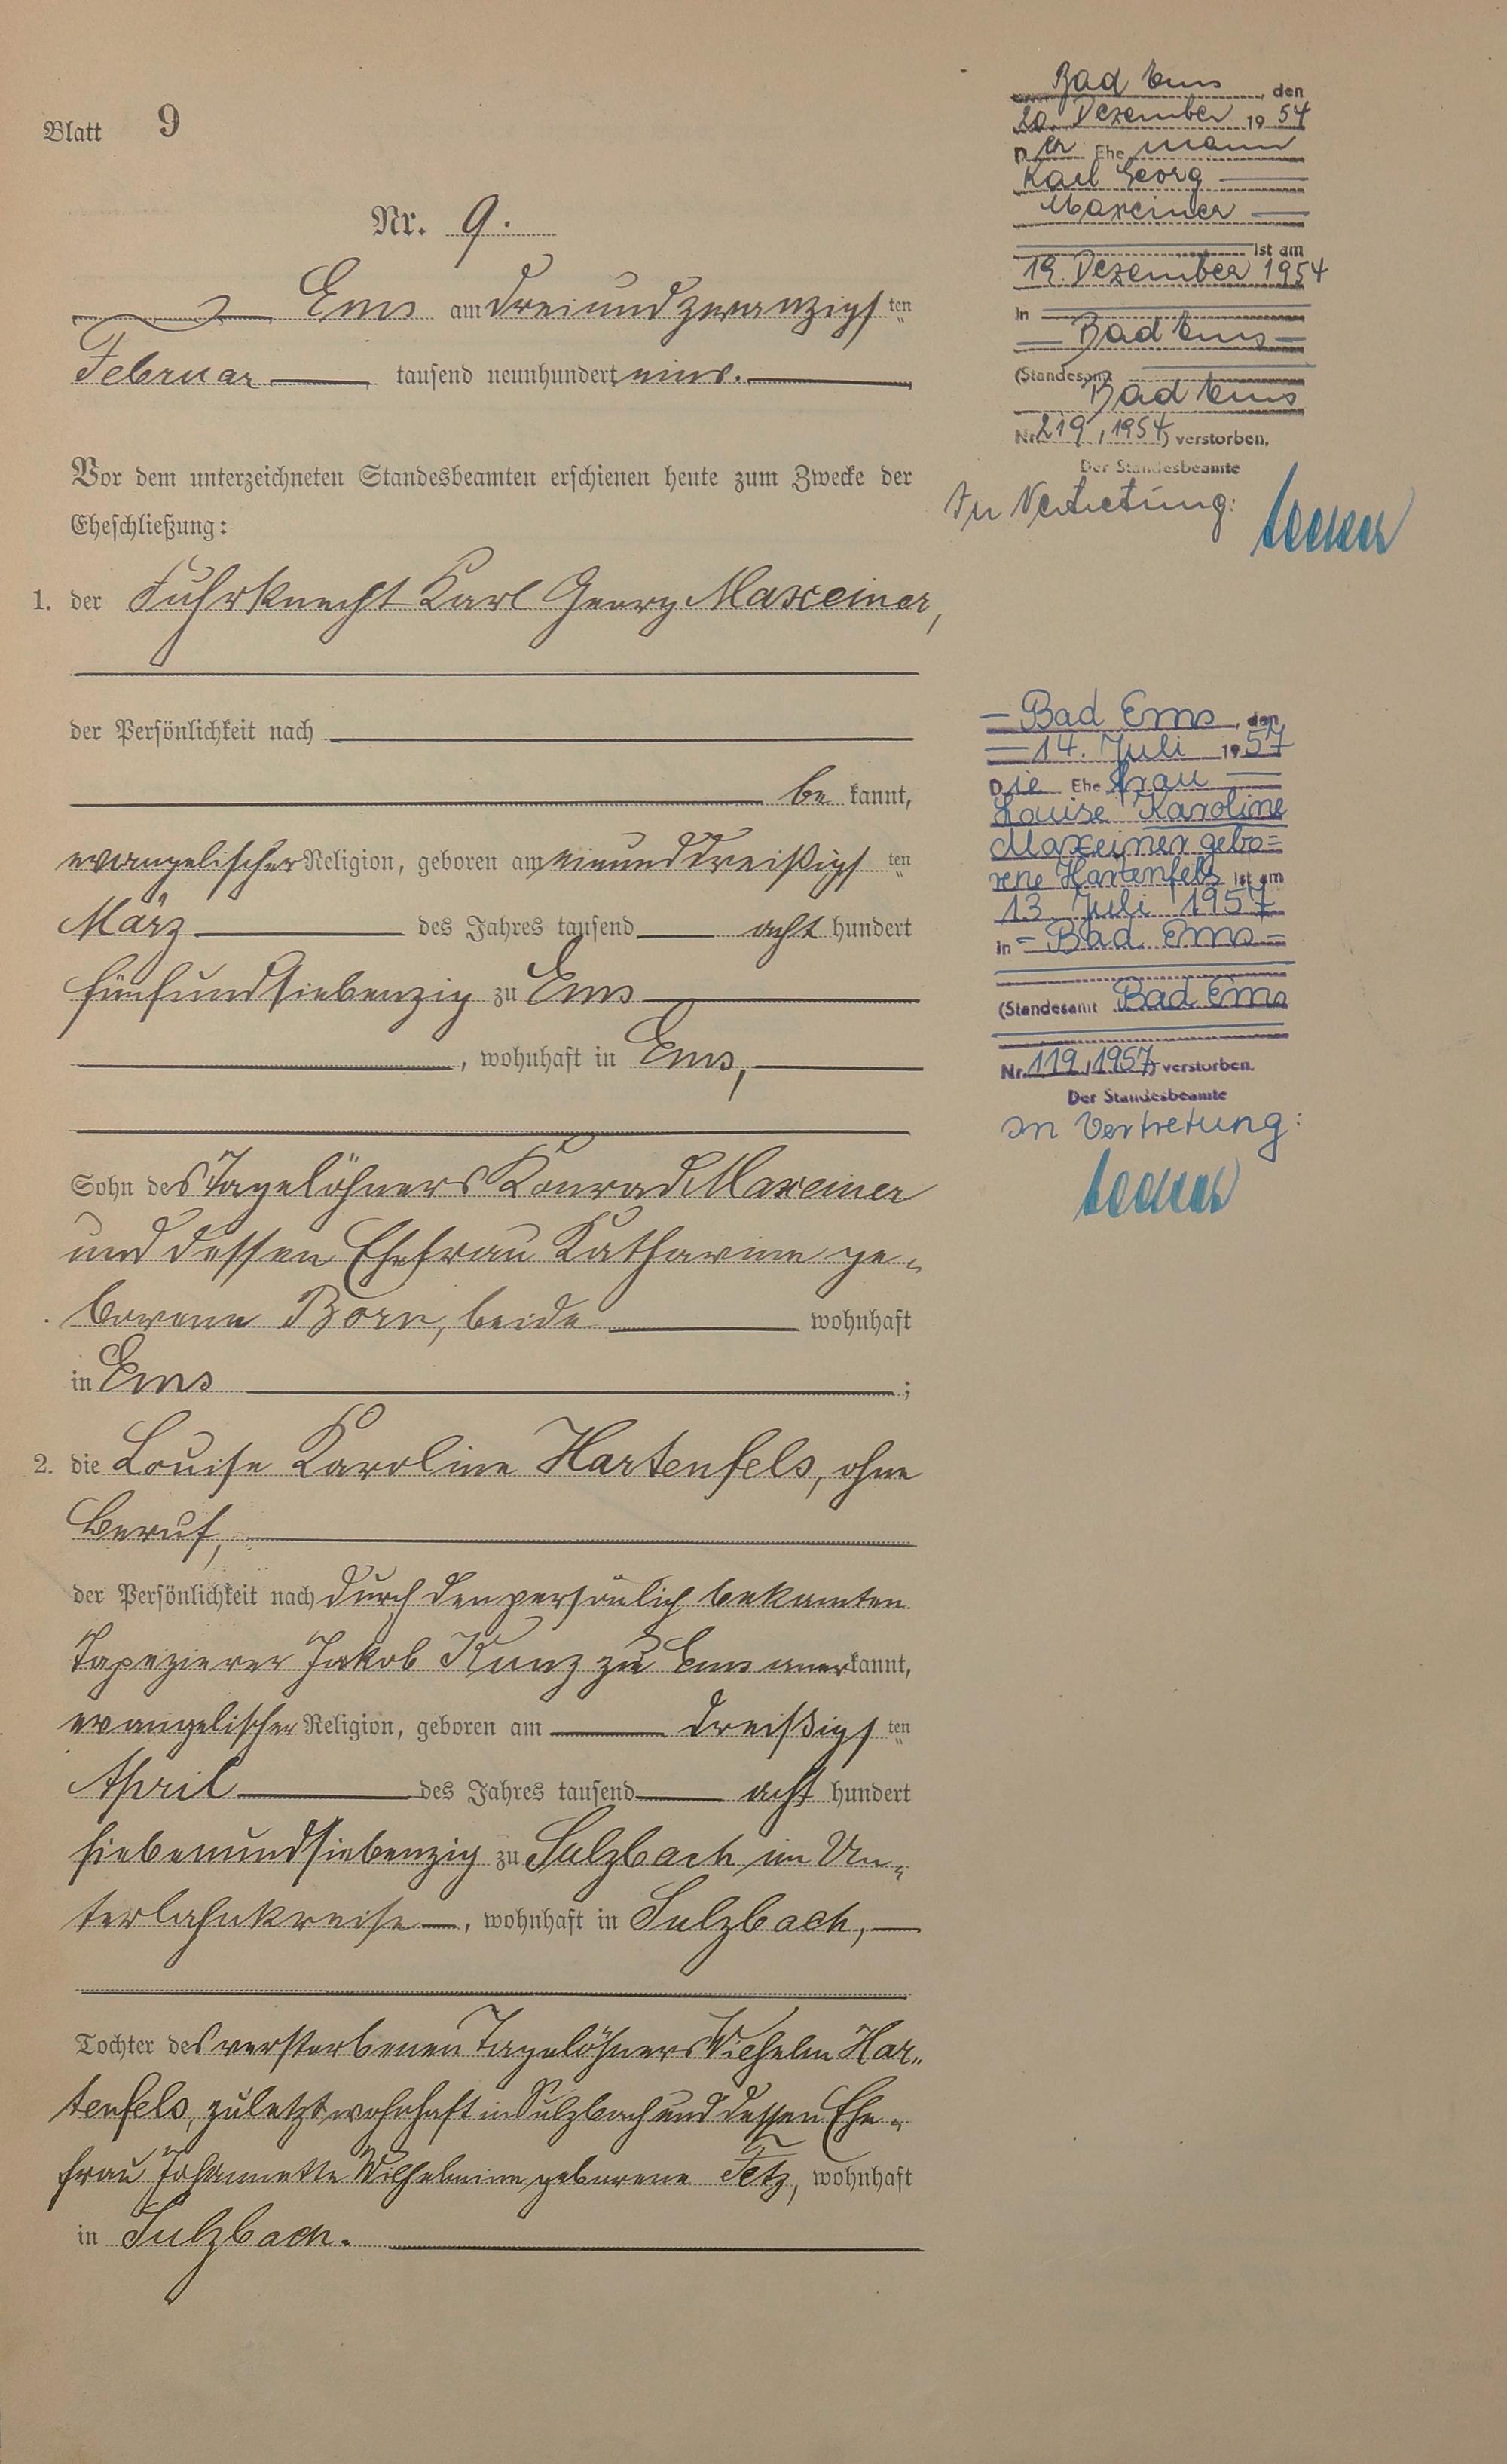 Blatt 9
Nr. 9.
Ems am dreiundzwanzigsten
Februar tausend neunhundert eins.
Vor dem unterzeichneten Standesbeamten erschienen heute zum Zwecke der
Eheschließung:
1. der Fuhrknecht Karl Georg Maxeiner,
der Persönlichkeit nach
be kannt,
evangelischer Religion, geboren am einunddreißigsten
März des Jahres tausend acht hundert
fünfundsiebenzig zu Ems
, wohnhaft in Ems,
Sohn des Tagelöhners Konrad Maxeiner
und dessen Ehefrau Katharine ge-
borene Born, beide wohnhaft
in Ems ;
2. die Louise Karoline Hartenfels, ohne
Beruf,
der Persönlichkeit nach durch den persönlich bekannten
Tapezierer Jakob Kunz zu Ems anerkannt,
evangelischer Religion, geboren am dreißigsten
April des Jahres tausend acht hundert
siebenundsiebenzig zu Sulzbach im Un-
terlahnkreise, wohnhaft in Sulzbach,
Tochter des verstorbenen Tagelöhners Wilhelm Har-
tenfels, zuletzt wohnhaft in Sulzbach und dessen Ehe-
frau Johannette Wilhelmine geborene Fetz, wohnhaft
in Sulzbach.
Bad Ems, den
20. Dezember 1954
Der Ehemann
Karl Georg
Maxeiner
ist am
19. Dezember 1954
in
Bad Ems
(Standesamt
Bad Ems
Nr. 219/1954) verstorben.
Der Standesbeamte
In Vertretung:
Bad Ems, den
14. Juli 1957
Die Ehefrau
Louise Karoline
Maxeiner gebo=
rene Hartenfels ist am
13. Juli 1957
in Bad Ems
(Standesamt Bad Ems
Nr. 119/1957) verstorben.
Der Standesbeamte
In Vertretung: